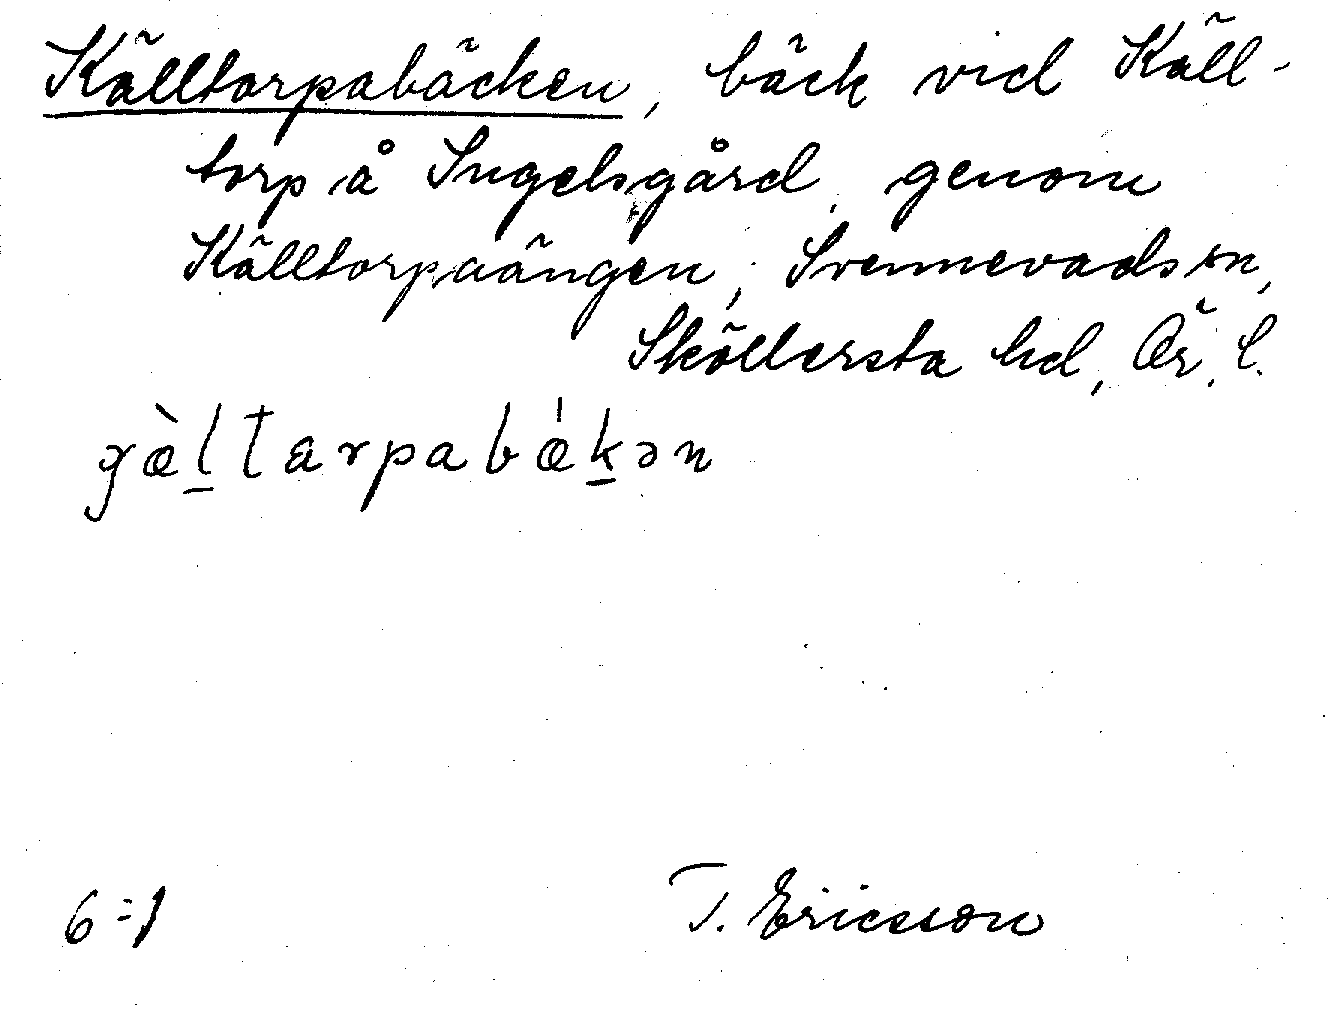 Källtorpabäcken, bäck vid Käll-
torp å Ingelsgård, genom
Källtorpaängen, Svennevads sn,
Sköllersta hd, Ör. l.
6:1
T. Ericsson